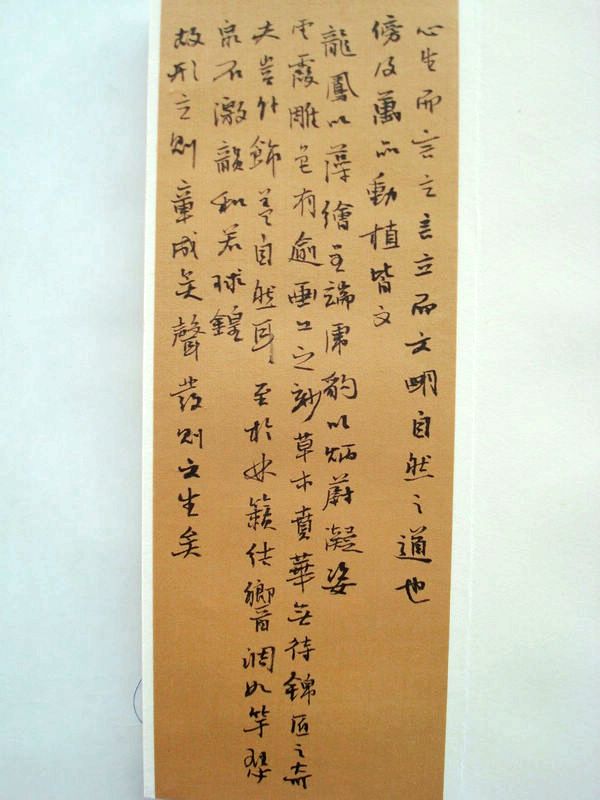 心生而言立言立而文明自然之道也
傍及萬品動植皆文
龍鳳以藻繪呈瑞虎豹以炳蔚凝姿
雲霞雕色有逾畫工之妙草木賁華無待錦匠之奇
夫豈外飾蓋自然耳至於林籟結響調如竽瑟
泉石激韻和若球鍠
故形立則章成矣聲發則文生矣